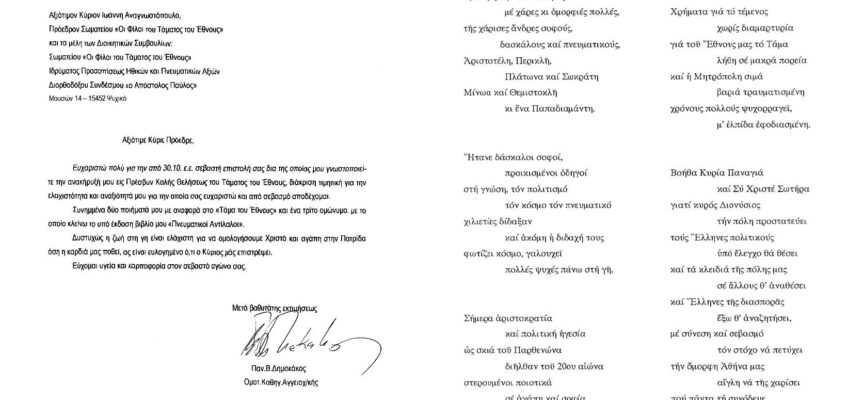 Αξιότιμον Κύριον Ιωάννη Αναγνωστόπουλο,
Πρόεδρον Σωματείου «Οι Φίλοι του Τάματος του Έθνους»
και τα μέλη των Διοικητικών Συμβουλίων:
Σωματείου «Οι Φίλοι του Τάματος του Έθνους»
Ιδρύματος Προασπίσεως Ηθικών και Πνευματικών Αξιών
Διορθοδόξου Συνδέσμου «ο Απόστολος Παύλος»
Μουσών 14 – 15452 Ψυχικό
Αξιότιμε Κύριε Πρόεδρε,
Ευχαριστώ πολύ για την από 30.10. ε.ε. σεβαστή επιστολή σας δια της οποίας μου γνωστοποιεί-
τε την ανακήρυξή μου εις Πρέσβυν Καλής Θελήσεως του Τάματος του Έθνους, διάκριση τιμητική για την
ελαχιστότητα και αναξιότητά μου για την οποία σας ευχαριστώ και από σεβασμό αποδέχομαι.
Συνημμένα δύο ποιήματά μου με αναφορά στο «Τάμα του Έθνους» και ένα τρίτο ομώνυμο, με το
οποίο κλείνω το υπό έκδοση βιβλίο μου «Πνευματικοί Αντίλαλοι».
Δυστυχώς η ζωή στη γη είναι ελάχιστη για να ομολογήσουμε Χριστό και αγάπη στην Πατρίδα
όση η καρδιά μας ποθεί, ας είναι ευλογημένο ό,τι ο Κύριος μάς επιτρέψει.
Εύχομαι υγεία και καρποφορία στον σεβαστό αγώνα σας.
Μετά βαθυτάτης εκτιμήσεως
Παν.Β.Δημακάκος
Ομοτ.Καθηγ.Αγγειοχ/κής
μέ χάρες κι ὀμορφιές πολλές,
τῆς χάρισες ἄνδρες σοφούς,
δασκάλους καί πνευματικούς,
Ἀριστοτέλη, Περικλῆ,
Πλάτωνα καί Σωκράτη
Μίνωα καί Θεμιστοκλῆ
κι ἕνα Παπαδιαμάντη.
Ἤτανε δάσκαλοι σοφοί,
προικισμένοι ὁδηγοί
στή γνώση, τόν πολιτισμό
τόν κόσμο τόν πνευματικό
χιλιετίες δίδαξαν
καί ἀκόμη ἡ διδαχή τους
φωτίζει κόσμο, γαλουχεῖ
πολλές ψυχές πάνω στή γῆ.
Σήμερα ἀριστοκρατία
καί πολιτική ἡγεσία
ὡς σκιά τοῦ Παρθενώνα
διῆλθαν τοῦ 20ου αἰώνα
στερουμένοι ποιοτικά
σέ ἀγάπη καί σοφία
Χρήματα γιά τό τέμενος
χωρίς διαμαρτυρία
γιά τοῦ Ἔθνους μας τό Τάμα
λήθη σέ μακρά πορεία
καί ἡ Μητρόπολη σιμά
βαριά τραυματισμένη
χρόνους πολλούς ψυχορραγεῖ,
μ' ἐλπίδα ἐφοδιασμένη.
Βοήθα Κυρία Παναγιά
καί Σύ Χριστέ Σωτήρα
γιατί κυρός Διονύσιος
τήν πόλη προστατεύει
τούς Ἕλληνες πολιτικούς
ὑπό ἔλεγχο θά θέσει
καί τά κλειδιά τῆς πόλης μας
σέ ἄλλους θ' ἀναθέσει
καί Ἕλληνες τῆς διασπορᾶς
ἔξω θ' ἀναζητήσει,
μέ σύνεση καί σεβασμό
τόν στόχο νά πετύχει
τήν ὄμορφη Ἀθήνα μας
αἴγλη νά τῆς χαρίσει
πού πάντα τή συνόδευε